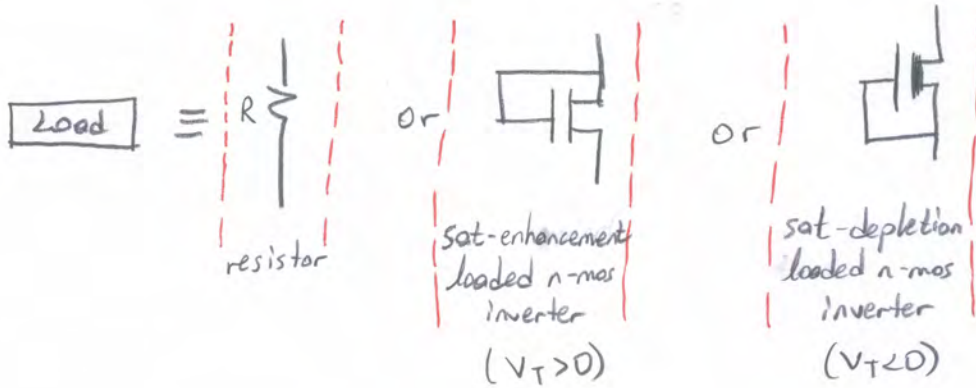 Load
≡
R
or
or
resistor
sat-enhancement
loaded n-mos
inverter
(V_T>0)
sat-depletion
loaded n-mos
inverter
(V_T<0)